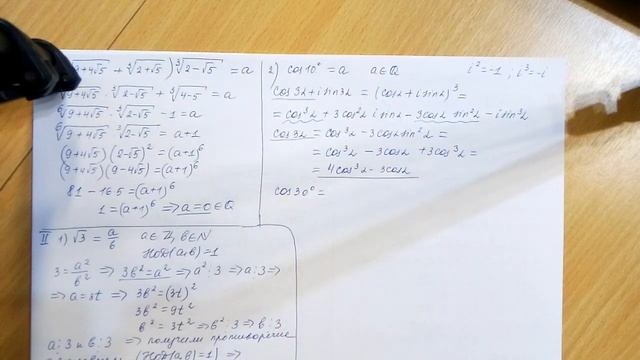 (⁶√(9+4√5) + ³√(2+√5)) ³√(2-√5) = a
⁶√(9+4√5) · ³√(2-√5) + ³√(4-5) = a
⁶√(9+4√5) · ³√(2-√5) - 1 = a
⁶√(9+4√5) ³√(2-√5) = a+1
(9+4√5)(2-√5)² = (a+1)⁶
(9+4√5)(9-4√5) = (a+1)⁶
81 - 16·5 = (a+1)⁶
1 = (a+1)⁶ ⇒ a=0 ∈ Q
2) cos10° = a a∈Q i²=-1, i³=-i
cos3α + i sin3α = (cosα + i sinα)³ =
= cos³α + 3cos²α i sinα - 3cosα sin²α - i sin³α
cos3α = cos³α - 3cosα sin²α =
= cos³α - 3cosα + 3cos³α =
= 4cos³α - 3cosα
cos30° =
II 1) √3 = a/b a∈Z, b∈N
НОД(a,b)=1
3 = a²/b² ⇒ 3b² = a² ⇒ a²⋮3 ⇒ a⋮3 ⇒
⇒ a=3t ⇒ 3b² = (3t)²
3b² = 9t²
b² = 3t² ⇒ b²⋮3 ⇒ b⋮3
a⋮3 и b⋮3 ⇒ получили противоречие
(НОД(a,b)=1) ⇒